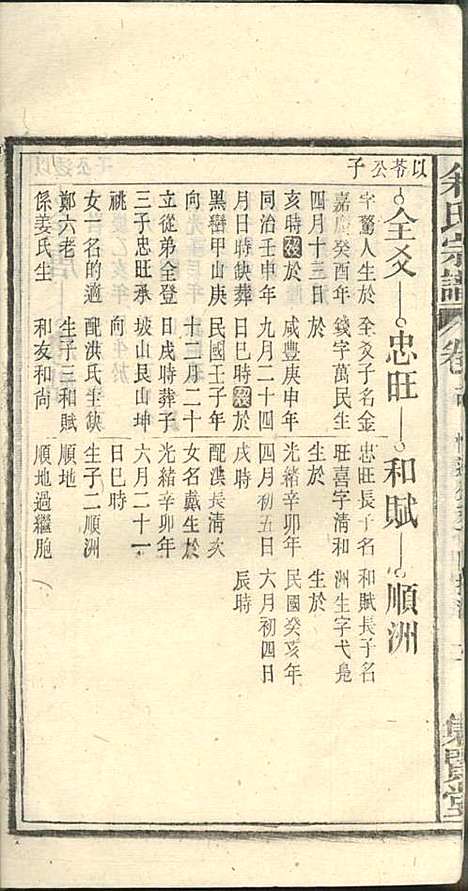 余氏宗譜
卷
集賢堂
以苓公子
全爻
忠旺
和賦
順洲
字驚人生於
嘉慶癸酉年
四月十三日
亥時歿於
同治壬申年
月日時缺葬
黑巒甲山庚
向
立從弟全登
三子忠旺承
祧
女名的適
鄭六老
係姜氏生
全爻子名金
錢字萬民生
於
咸豐庚申年
九月二十四
日巳時歿於
民國壬子年
十二月二十
日戌時葬于
坡山艮山坤
向
配洪氏年缺
生子三和賦
和友和尚
忠旺長子名
旺喜字清和
生於
光緒辛卯年
四月初五日
戌時
配漢長清次
女名戴生於
光緒辛卯年
六月二十一
日巳時
生子二順洲
順地
順地過繼胞
和賦長子名
洲生字弋
生於
民國癸亥年
六月初四日
辰時